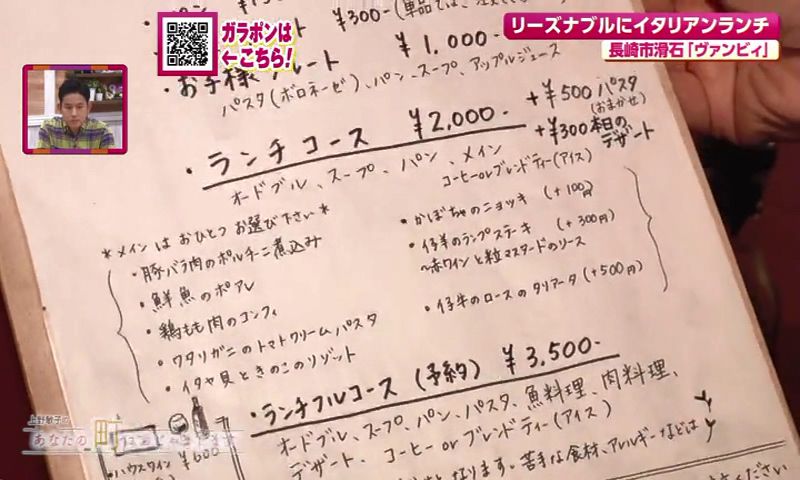 リーズナブルにイタリアンランチ
長崎市滑石「ヴァンビィ」
ガラポンは
←こちら!
¥300-
お子様プレート ¥1,000-
パスタ(ボロネーゼ)、パン、スープ、アップルジュース
・ランチコース ¥2,000-
+¥500 パスタ
(おまかせ)
+¥300 本日の
デザート
オードブル、スープ、パン、メイン
コーヒーorブレンドティー(アイス)
*メインはおひとつお選び下さい*
・豚バラ肉のポルチーニ煮込み
・鮮魚のポアレ
・鶏もも肉のコンフィ
・ワタリガニのトマトクリームパスタ
・イタヤ貝ときのこのリゾット
・かぼちゃのニョッキ (+100円)
・仔羊のランプステーキ (+300円)
〜赤ワインと粒マスタードのソース
・仔牛のロースのタリアータ(+500円)
・ランチフルコース(予約) ¥3,500-
オードブル、スープ、パン、パスタ、魚料理、肉料理、
デザート、コーヒーorブレンドティー(アイス)
となります。苦手な食材、アレルギーなどは
ください
上野敏子の
あなたの町
・ハウスワイン
¥600